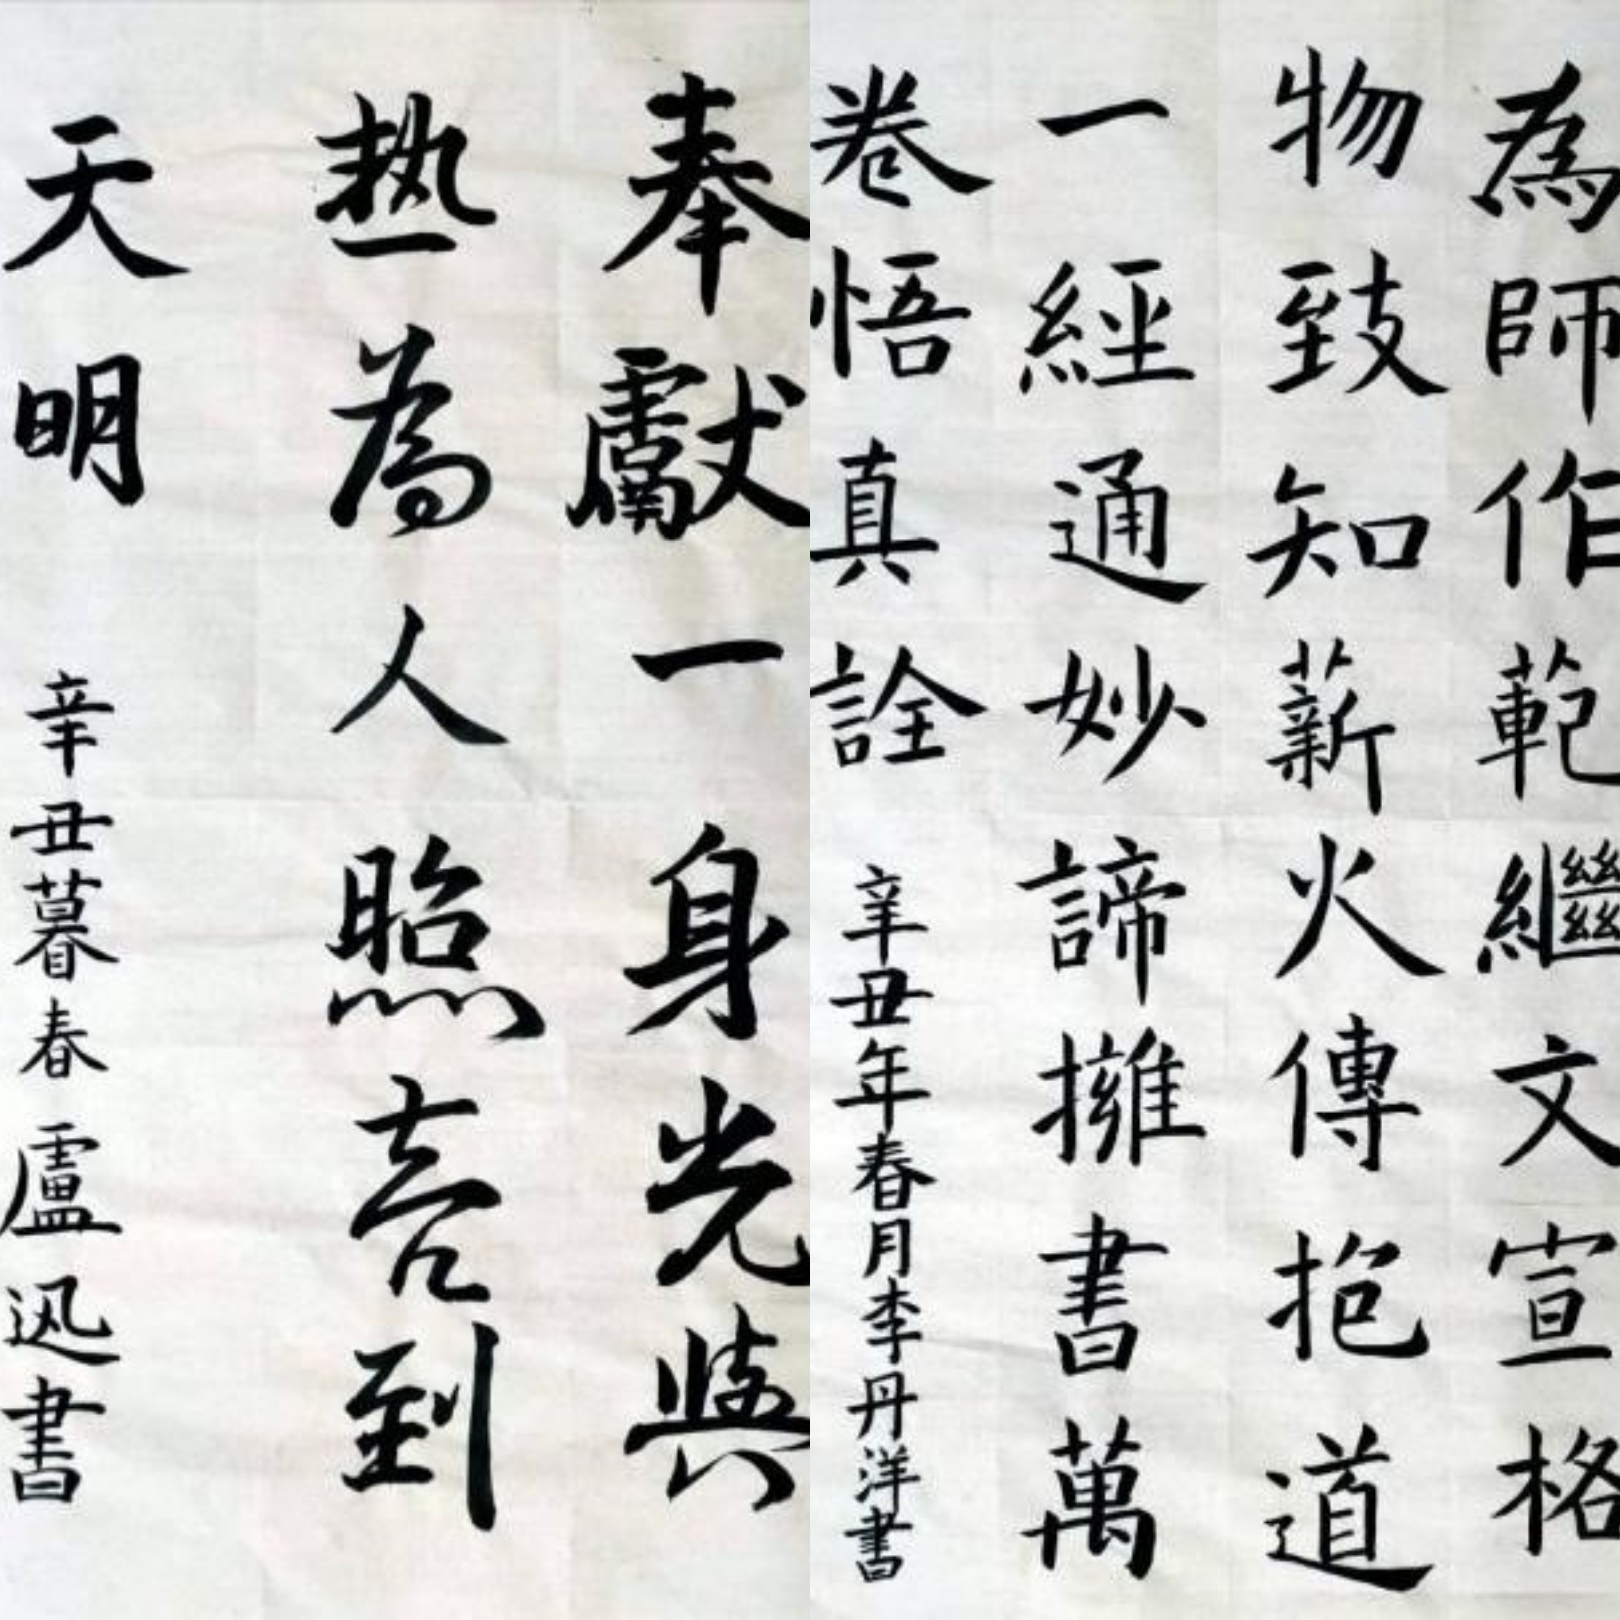 奉獻一身光與
热為人照亮到
天明
辛丑暮春盧迅書
為師作範繼文宣格
物致知薪火傳抱道
一經通妙諦擁書萬
卷悟真詮
辛丑年春月李丹洋書